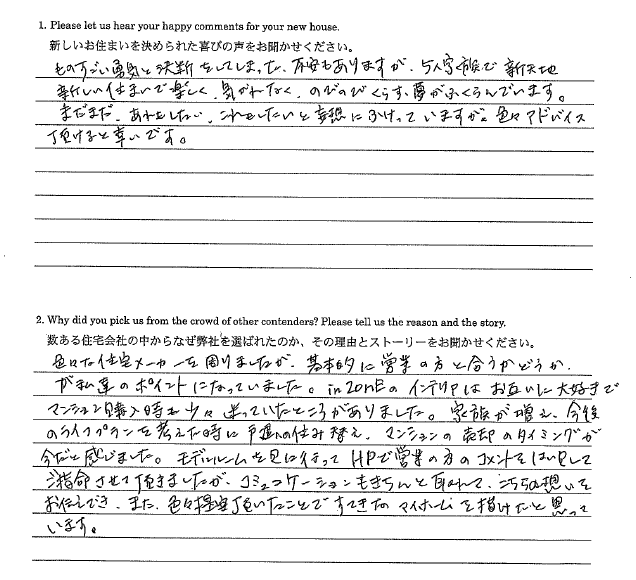 1. Please let us hear your happy comments for your new house.
新しいお住まいを決められた喜びの声をお聞かせください。
ものすごい勇気と決断をしてしまった。不安もありますが、5人家族で新天地
新しい住まいで楽しく、気がねなく、のびのびくらす、夢がふくらんでいます。
まだまだ、あれもしたい、これもしたいと妄想にふけっていますが。色々アドバイス
頂けると幸いです。
2. Why did you pick us from the crowd of other contenders? Please tell us the reason and the story.
数ある住宅会社の中からなぜ弊社を選ばれたのか、その理由とストーリーをお聞かせください。
色々な住宅メーカーを周りましたが、基本的に営業の方と合うかどうか、
が私達のポイントになっていました。in ZONEのインテリアはお互いに大好きで
マンション購入時も少々迷っていたところがありました。家族が増え、今後
のライフプランを考えた時に戸建への住み替え、マンションの売却のタイミングが
今だと感じました。モデルルームを見に行ってHPで営業の方のコメントをはいけんして
ご指命させて頂きましたが、コミュニケーションもきちんと取れて、こちらの想いを
お伝えでき、また、色々提案頂いたことですてきなマイホームを描けたと思って
います。